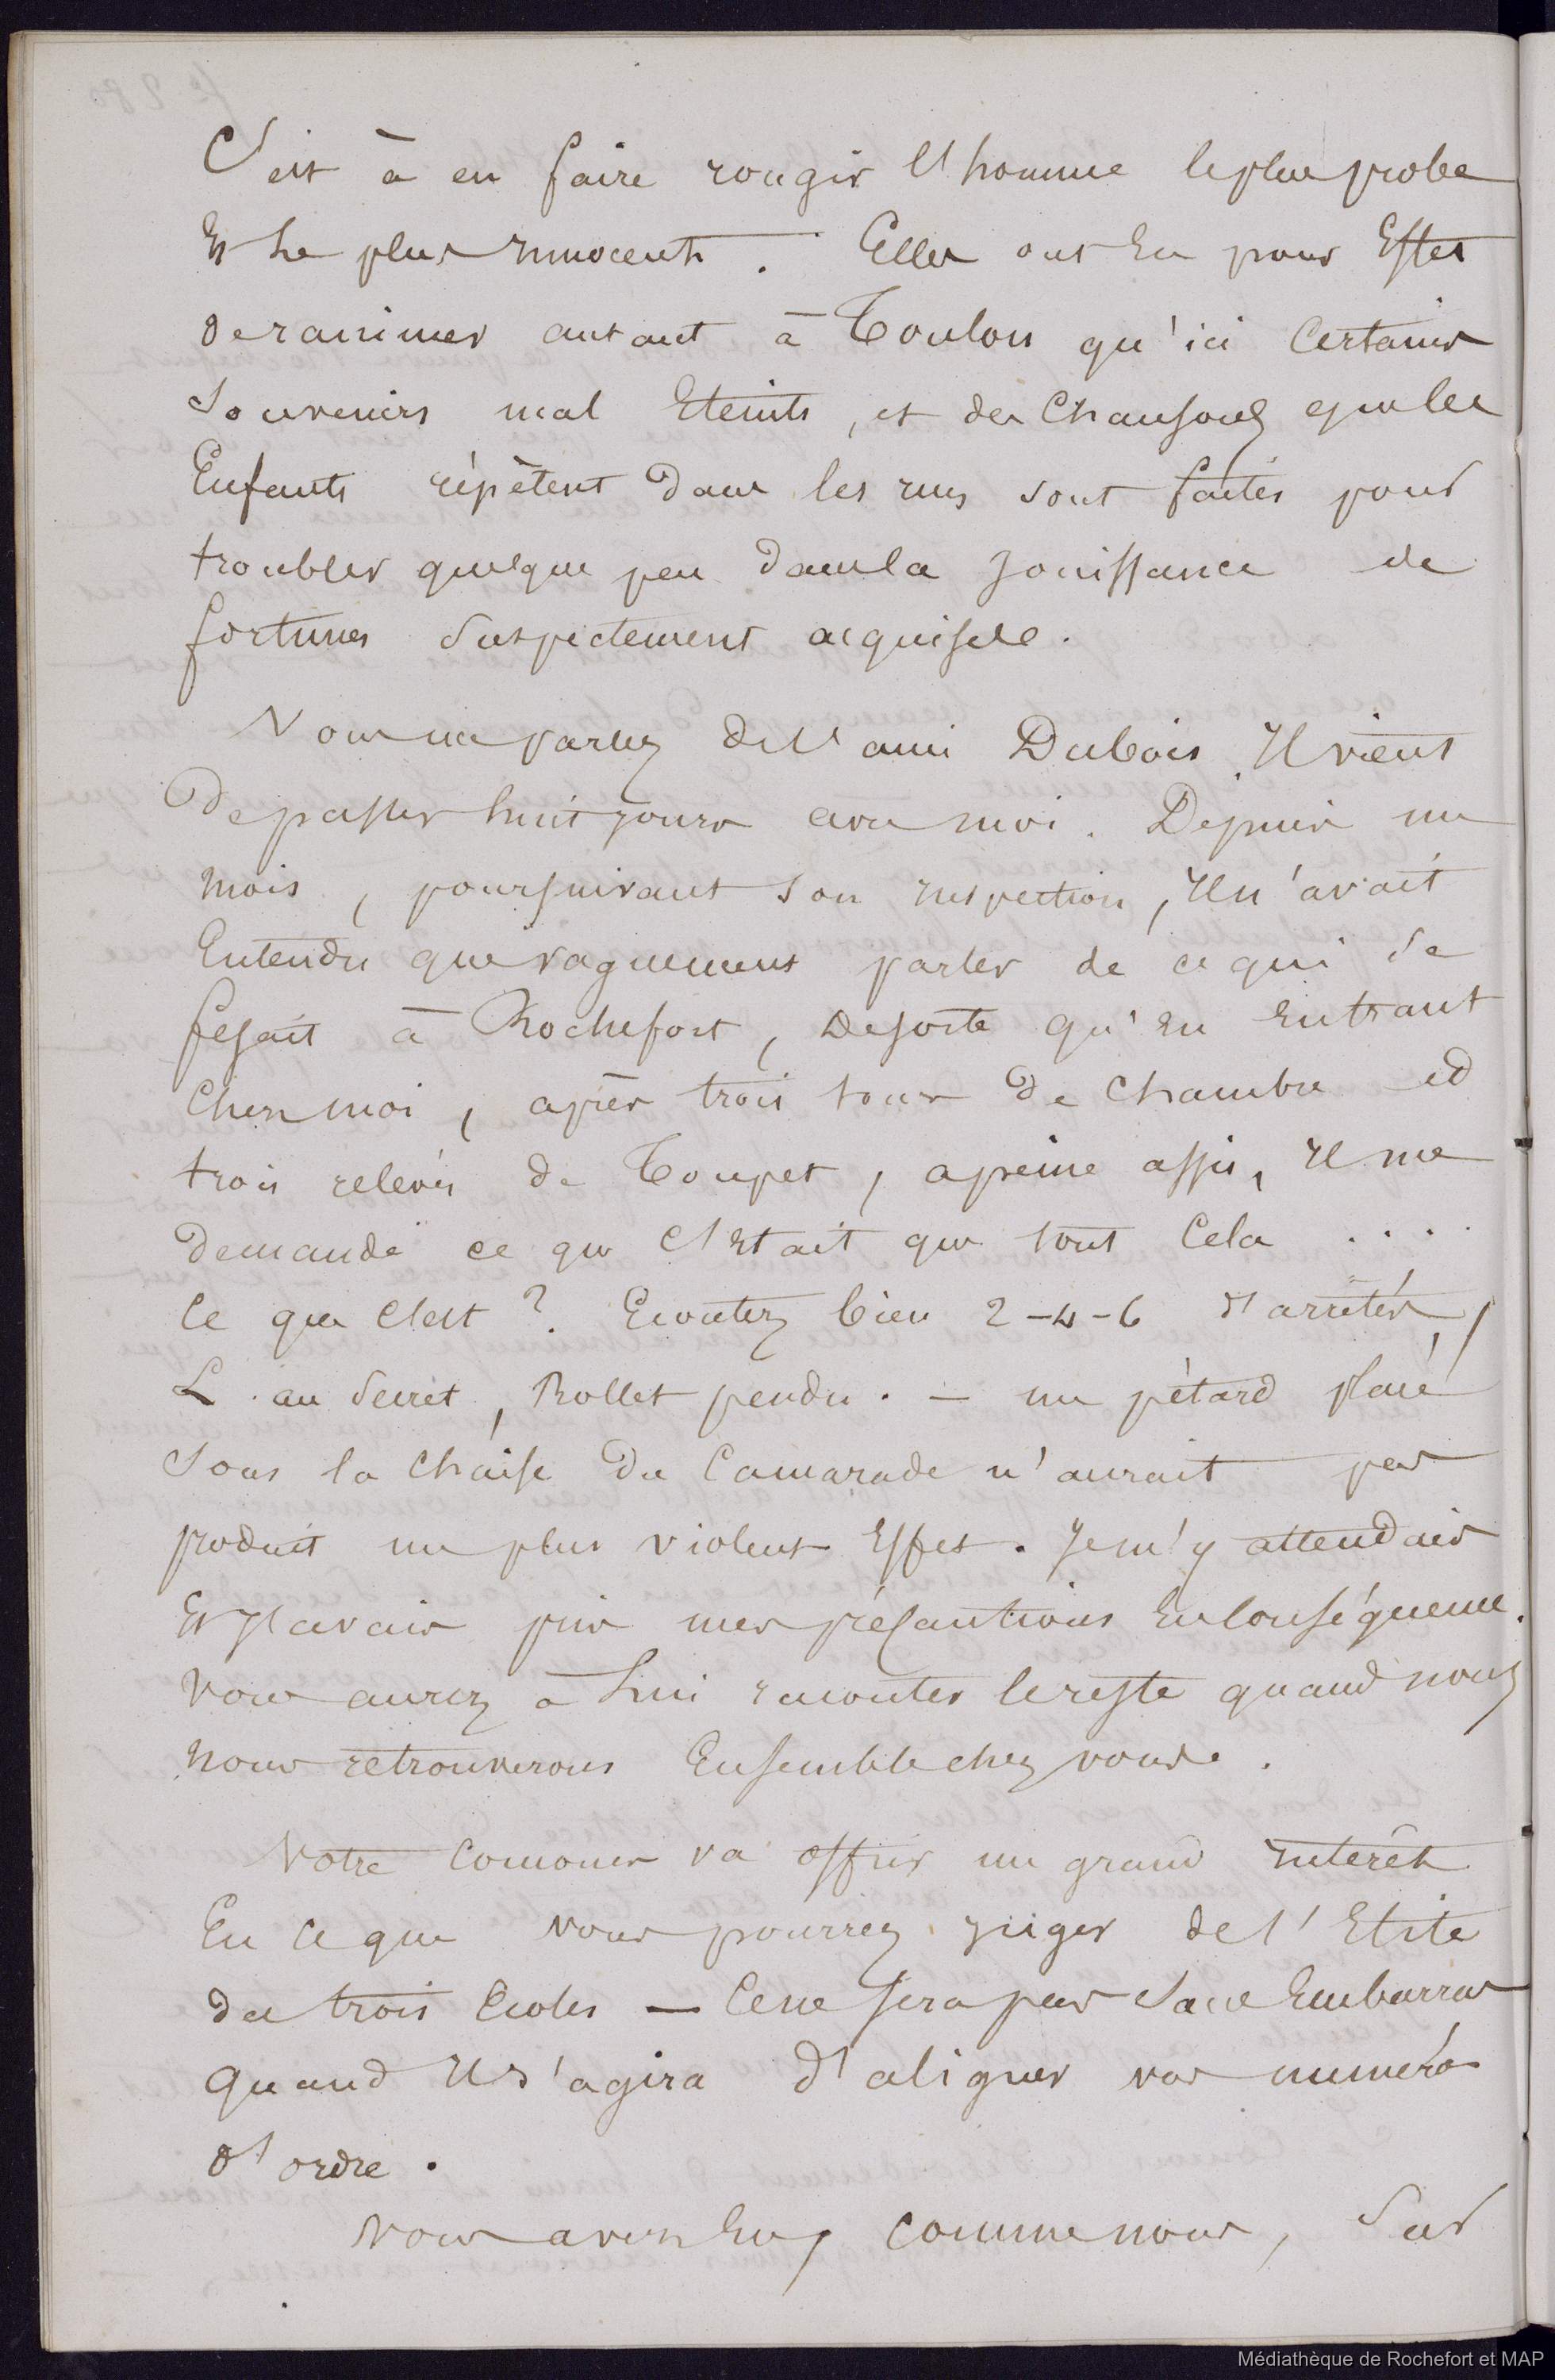 C'est à en faire rougir l'homme le plus probe
Et le plus Innocent. Elles ont Eu pour Effet
de ranimer autant à Toulon qu'ici Certains
Souvenirs mal Eteints, et des Chansons que les
Enfants répètent Dans les rues sont faites pour
troubler quelque peu dans la Jouissance de
fortunes Suspectement acquises.
Vous me parlez de l'ami Dubois. Il vient
De passer huit jours avec moi. Depuis un
mois, poursuivant Son Inspection, Il n'avait
Entendu que vaguement parler de ce qui se
fesait à Rochefort, De sorte qu'En Entrant
Chez moi, après trois tours de Chambre et
trois relevés de Toupet, a peine assis, Il me
demande ce que C'Etait que tout Cela ....
Ce que C'est ? Ecoutez bien 2-4-6 d'arrêtés,
L. au Secret, Rollet pendu. — un pétard placé
sous la Chaise du Camarade n'aurait pas
produit un plus violent Effet. Je m'y attendais
Et J'avais pris mes précautions En Conséquence.
Vous aurez à Lui raconter le reste quand nous
nous retrouverons Ensemble chez vous.
Votre Concours va offrir un grand Intérêt
En ce que vous pourrez Juger de l'Elite
des trois Ecoles — Ce ne sera pas Sans Embarras
Quand Il s'agira d'aligner vos numéros
d'ordre.
Vous avez Eu, comme nous, Sur
Médiathèque de Rochefort et MAP